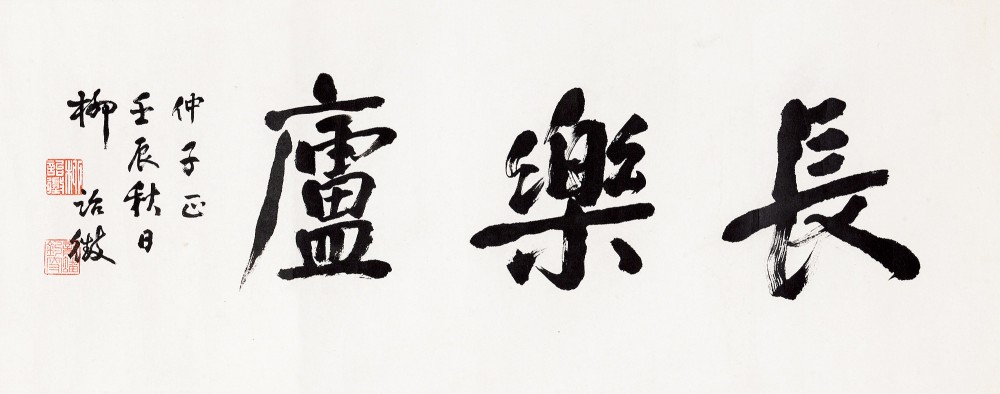 長樂廬
仲子正
壬辰秋日
柳詒徵